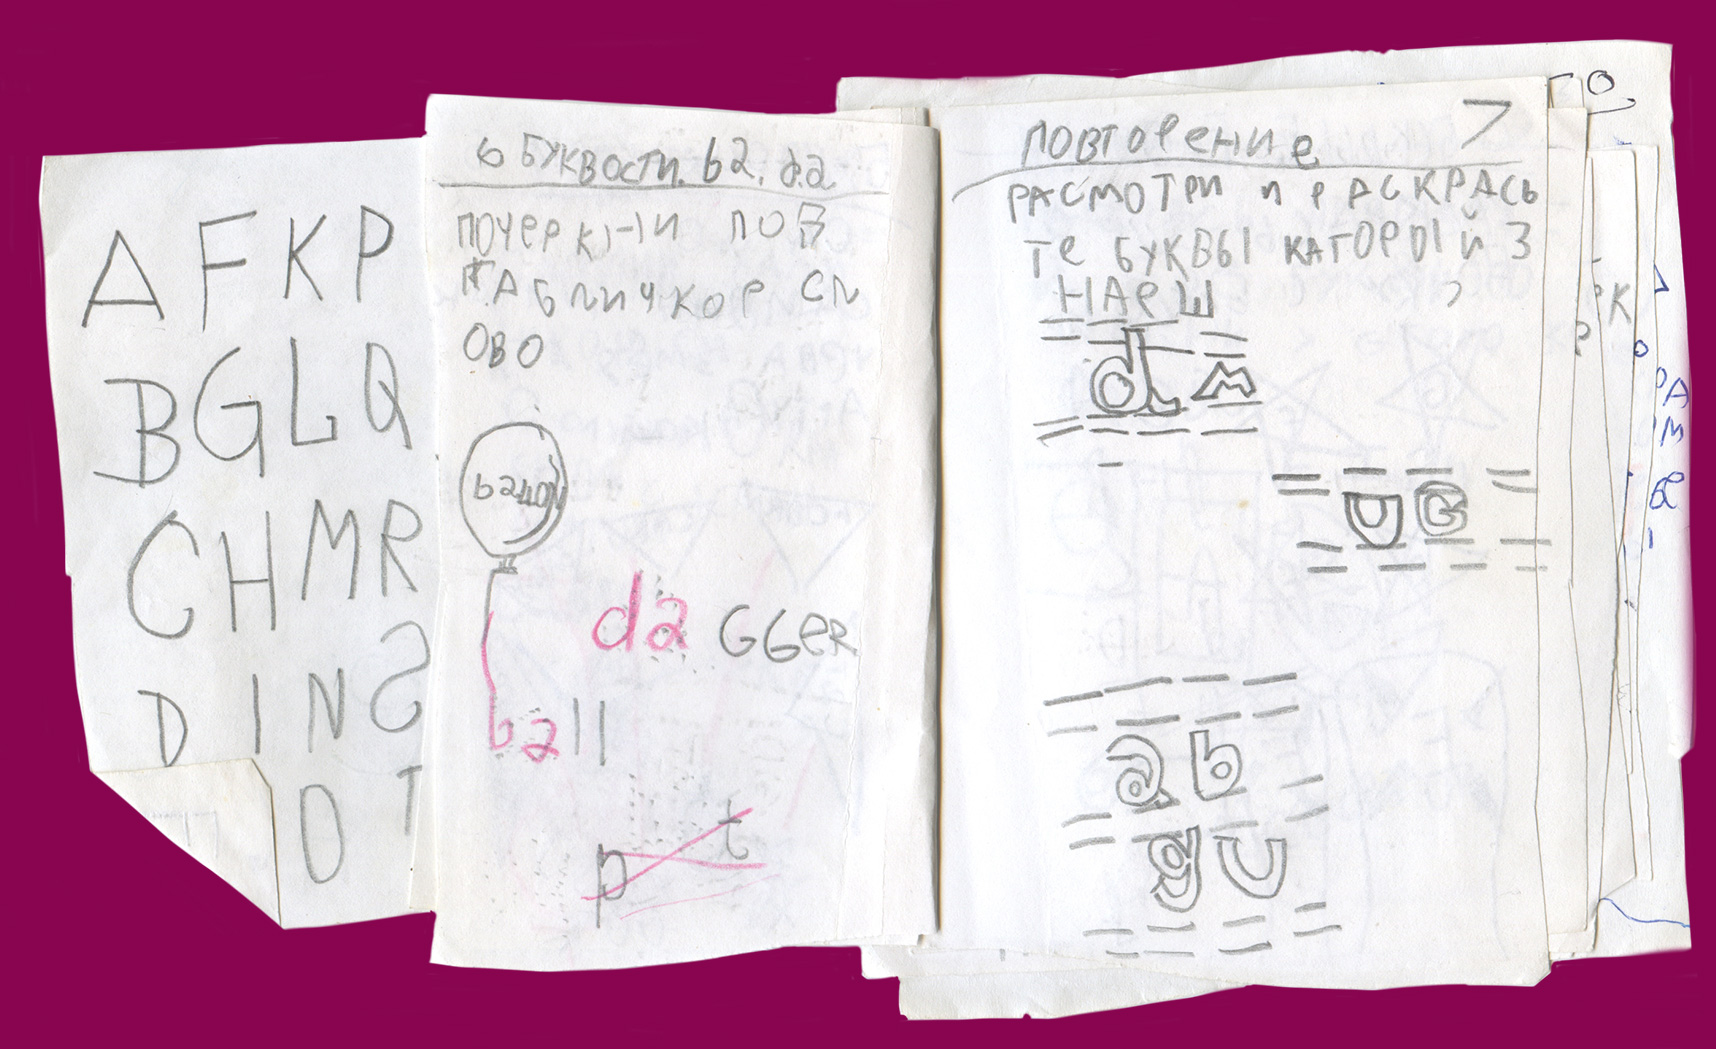 A F K P
B G L Q
C H M R
D I N S
O T
6 БУКВОСТИ. ba, da
ПОЧЕРКНИ ПОД
ТАБЛИЧКОР СЛ
ОВО
da GGeR
ball
p t
ПОВТОРЕНИЕ 7
РАСМОТРИ И РАСКРАСЬ
ТЕ БУКВЫ КАТОРЫЙ З
НАЕШ
d м
u e
a b
g u